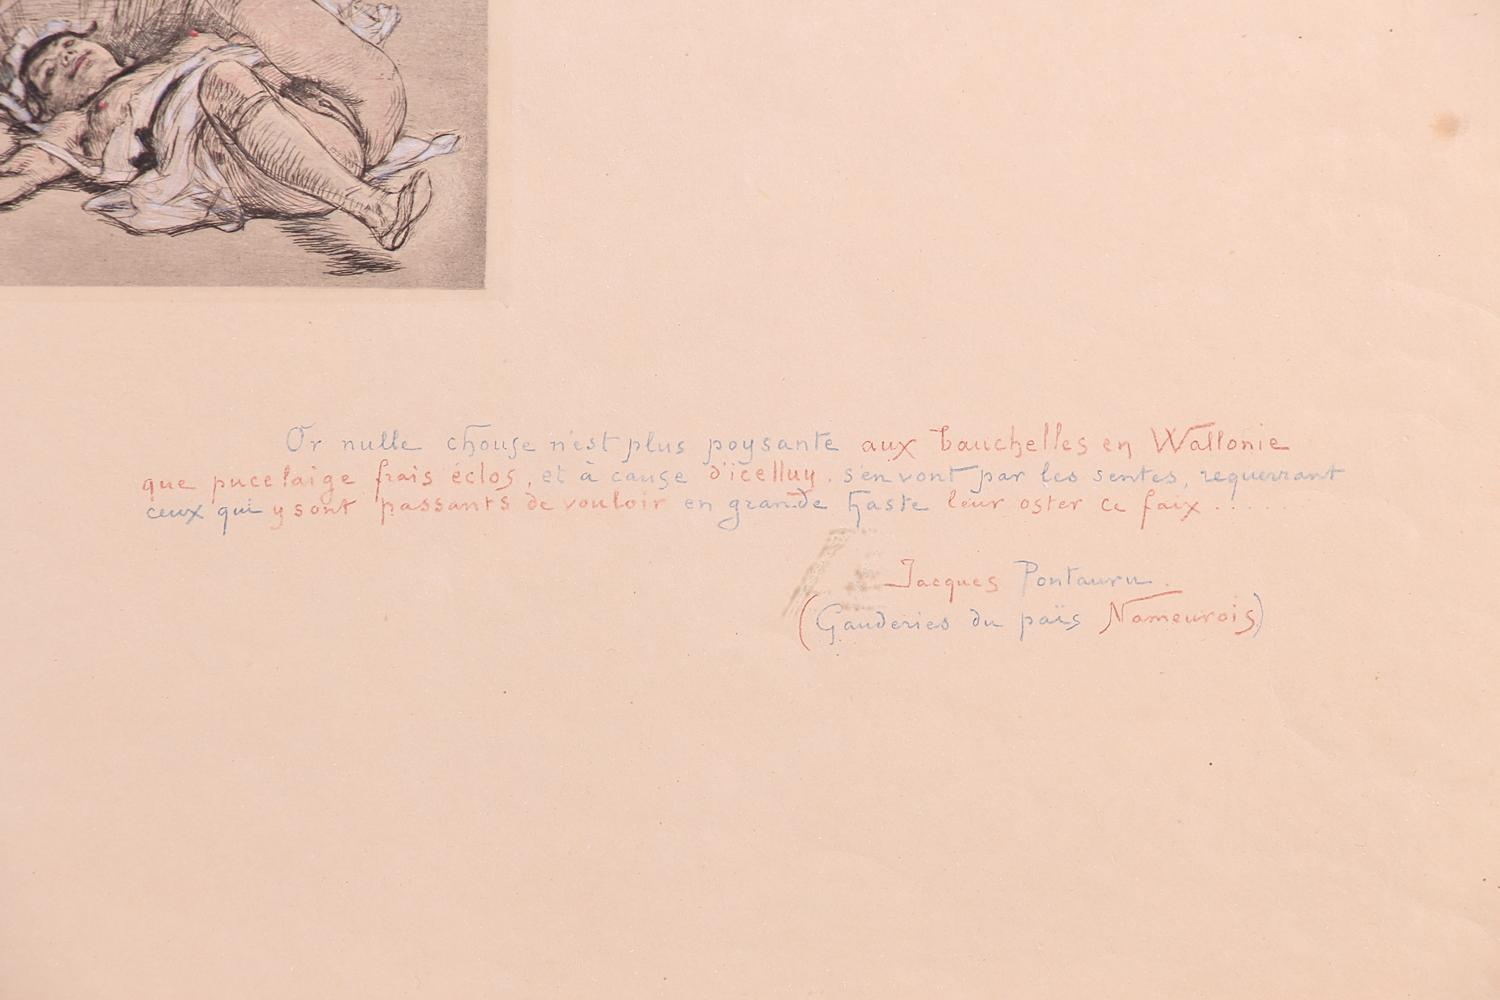 Or nulle chouse n'est plus poysante aux bauchelles en Wallonie
que pucelaige frais éclos, et à cause d'icelluy. s'en vont par les sentes, requerrant
ceux qui y sont passants de vouloir en grande haste leur oster ce faix......
Jacques Pontaury.
(Gauderies du païs Nameurois)